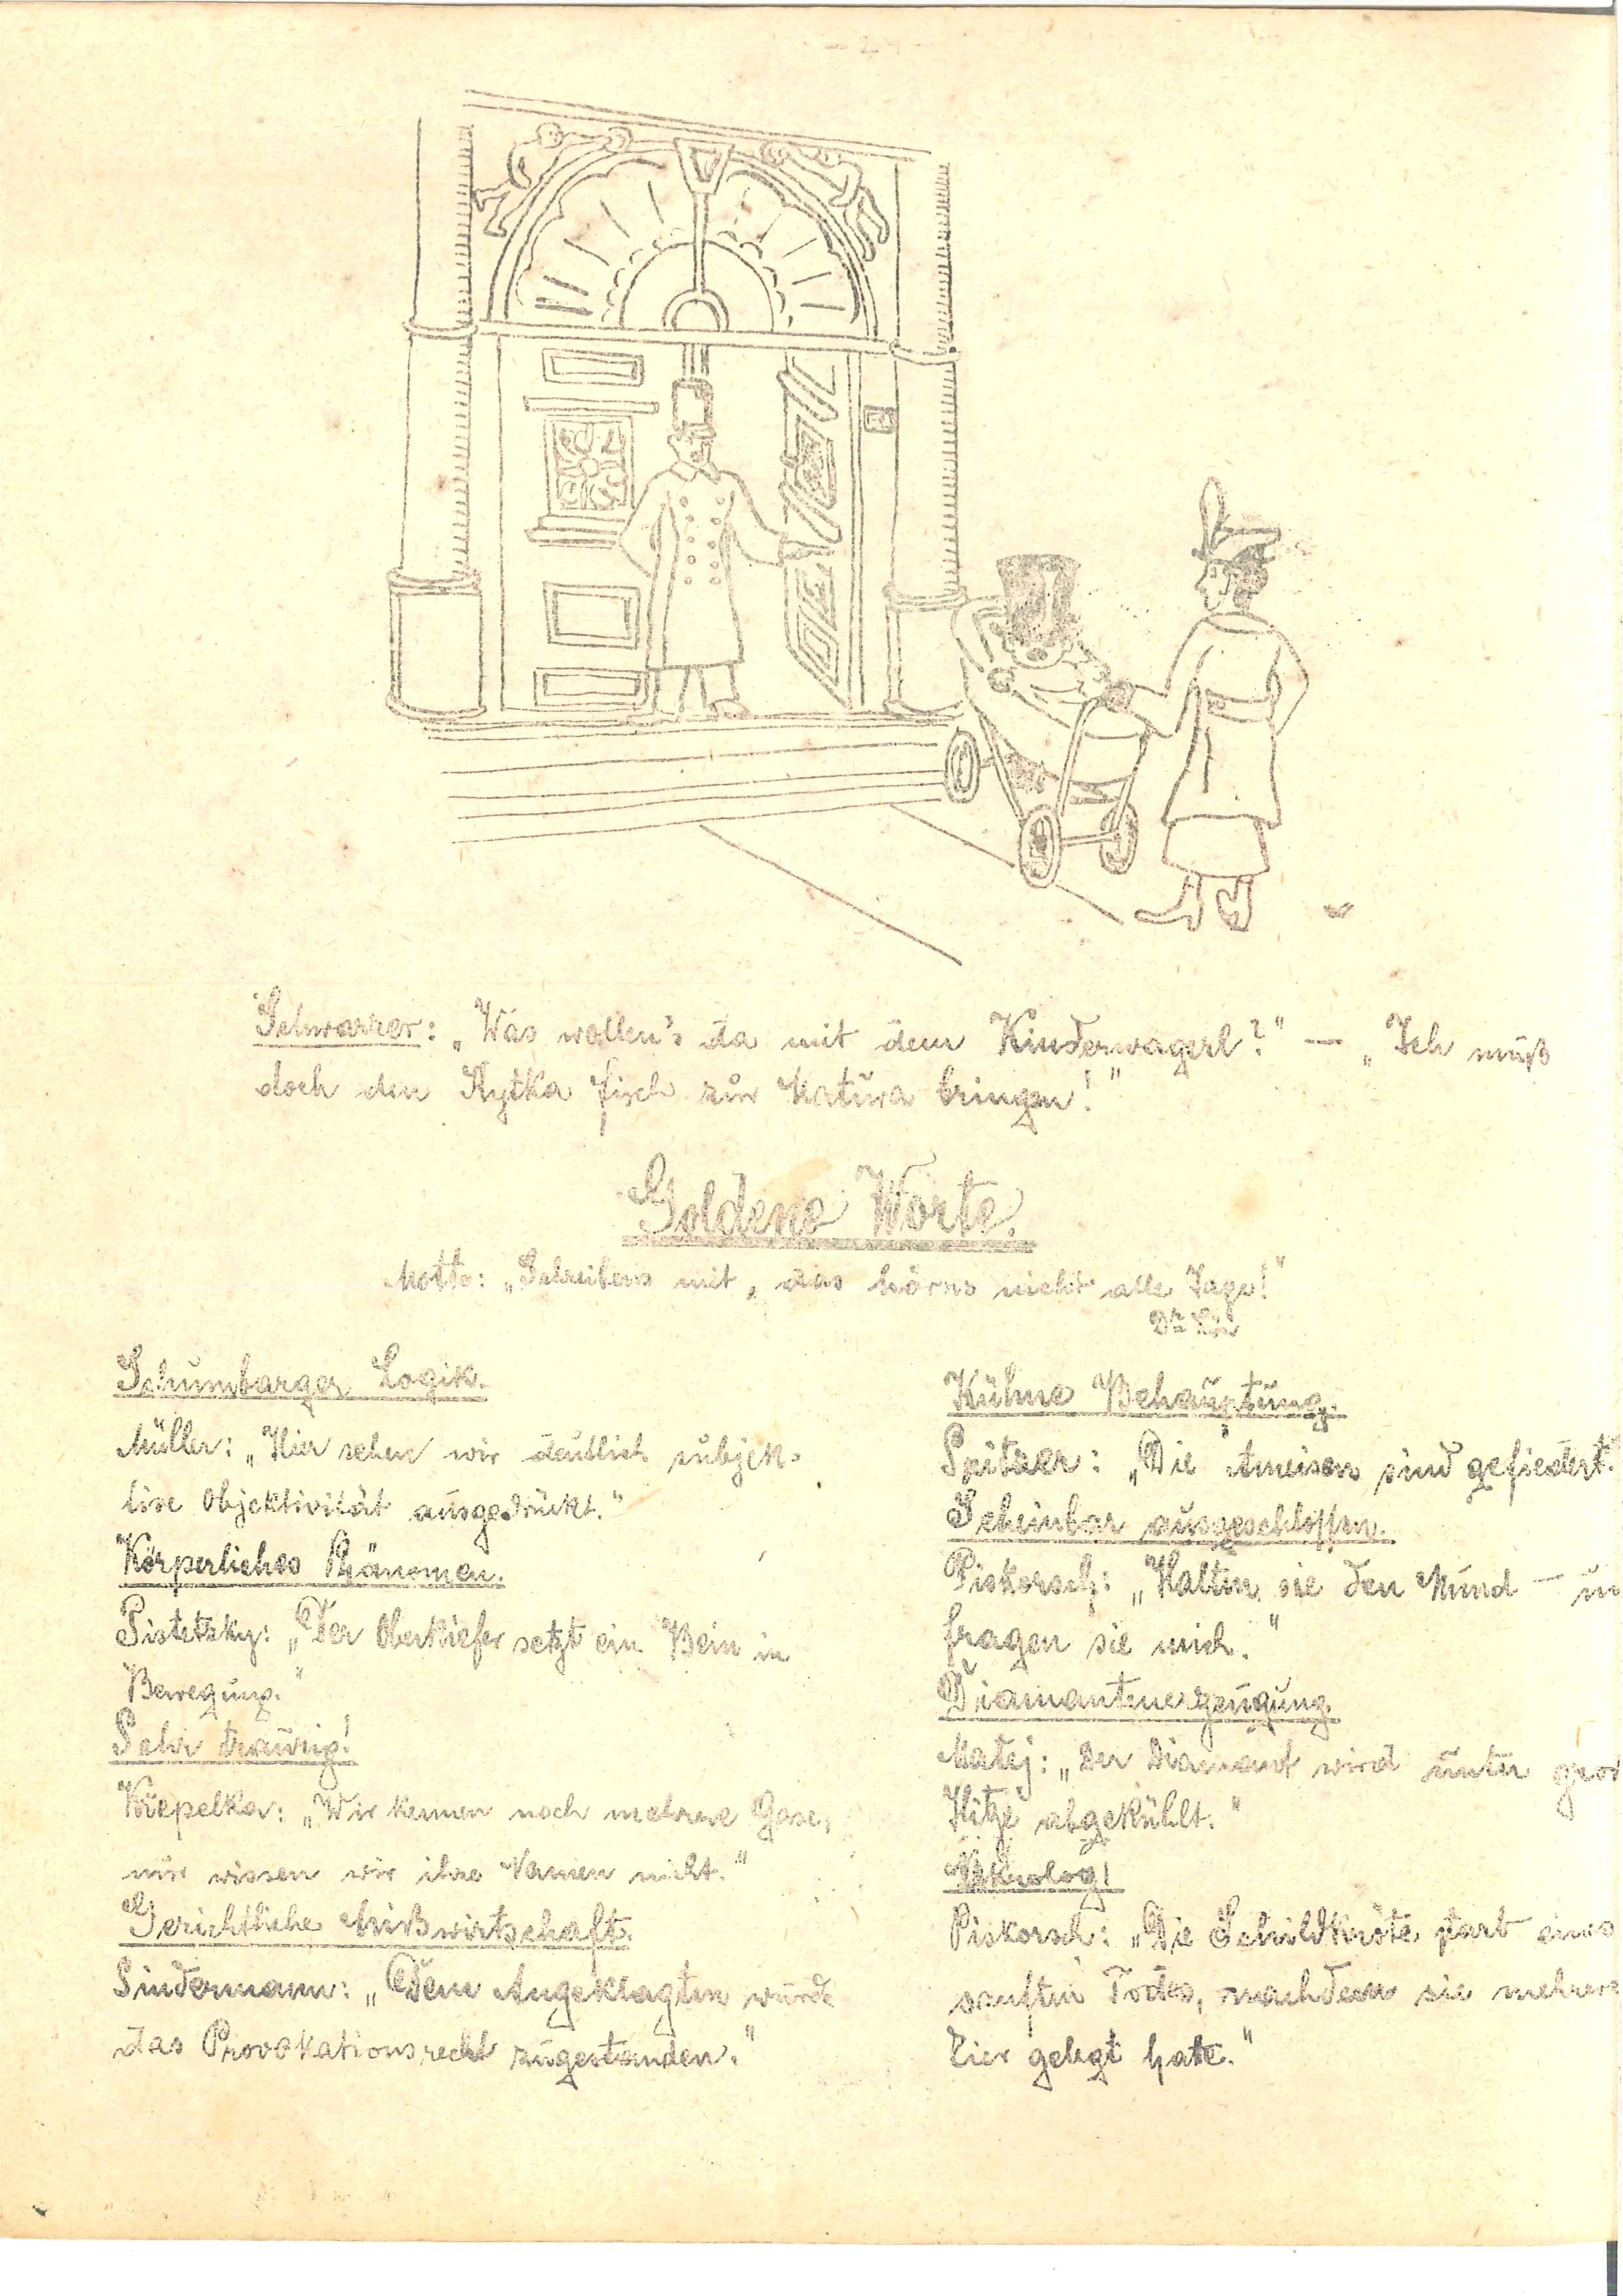 - 2 -
Schwarzer: „Was wollen's da mit dem Kinderwagerl?" — „Ich muß
doch den Rytka Fisch zur Matura bringen!"
Goldene Worte.
Motto: „Schreibens mit, das hörns nicht alle Tage!"
Dr.
Schumbarger Logik.
Müller: „Hier sehen wir deutlich subjek-
tive Objektivität ausgedrückt."
Körperliches Phänomen.
Pistetzky: „Der Oberkiefer setzt ein Bein in
Bewegung."
Sehr traurig!
Křepelka: „Wir kennen noch mehrere Gase,
nur wissen wir ihre Namen nicht."
Gerichtliche Mißwirtschaft.
Sindermann: „Dem Angeklagten wurde
das Provokationsrecht zugestanden."
Kühne Behauptung.
Spitzer: „Die Ameisen sind gefiedert."
Scheinbar ausgeschlossen.
Piskorsch: „Halten sie den Mund — un
fragen sie mich."
Diamantenerzeugung.
Matej: „Der Diamant wird unter gro
Hitze abgekühlt."
Nekrolog!
Piskorsch: „Die Schildkröte starb eines
sanften Todes, nachdem sie mehrere
Eier gelegt hate."